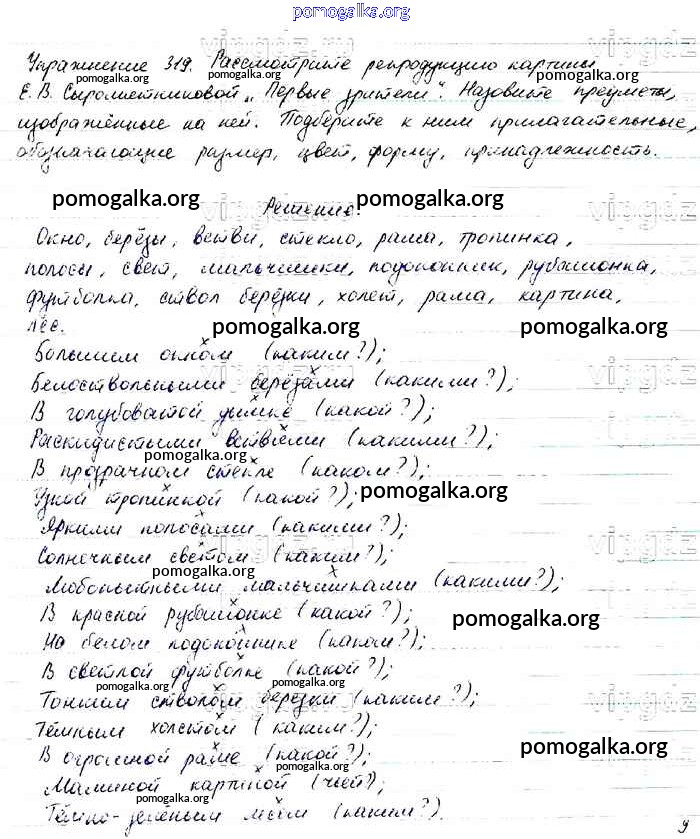 pomogalka.org
Упражнение 319. Рассмотрите репродукцию картины
pomogalka.org
pomogalka.org
Е. В. Сыромятниковой „Первые зрители". Назовите предметы,
изображённые на ней. Подберите к ним прилагательные,
обозначающие размер, цвет, форму, принадлежность.
pomogalka.org
pomogalka.org
Решение:
Окно, берёзы, ветви, стекло, рама, тропинка,
полосы, свет, мальчишки, подоконник, рубашонка,
футболка, ствол берёзки, холст, рама, картина,
лес.
pomogalka.org
pomogalka.org
Большим окном (каким?);
Белоствольными берёзами (какими?);
В голубоватой дымке (какой?);
Раскидистыми ветвями (какими?);
pomogalka.org
В прозрачном стекле (каком?);
Узкой тропинкой (какой?);
pomogalka.org
Яркими полосами (какими?);
Солнечным светом (каким?);
pomogalka.org
Любопытными мальчишками (какими?);
В красной рубашонке (какой?);
pomogalka.org
На белом подоконнике (каком?);
В светлой футболке (какой?);
pomogalka.org
Тонким стволом берёзки (каким?);
pomogalka.org
Тёмным холстом (каким?);
В огромной раме (какой?);
pomogalka.org
Маминой картиной (чьей?);
pomogalka.org
Тёмно-зелёным лесом (каким?).